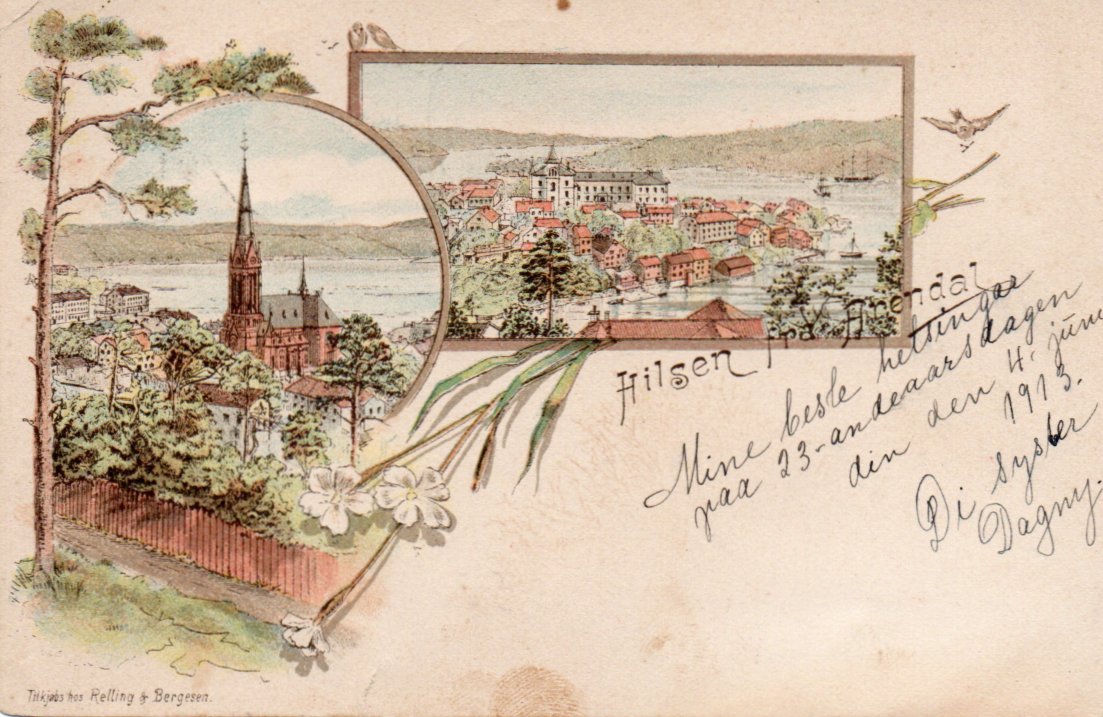 Hilsen fra Arendal
Mine beste helsingar
paa 23-andeaarsdagen
din den 4. júni
1913.
Di syster
Dagny.
Tilkjøbs hos Relling & Bergesen.